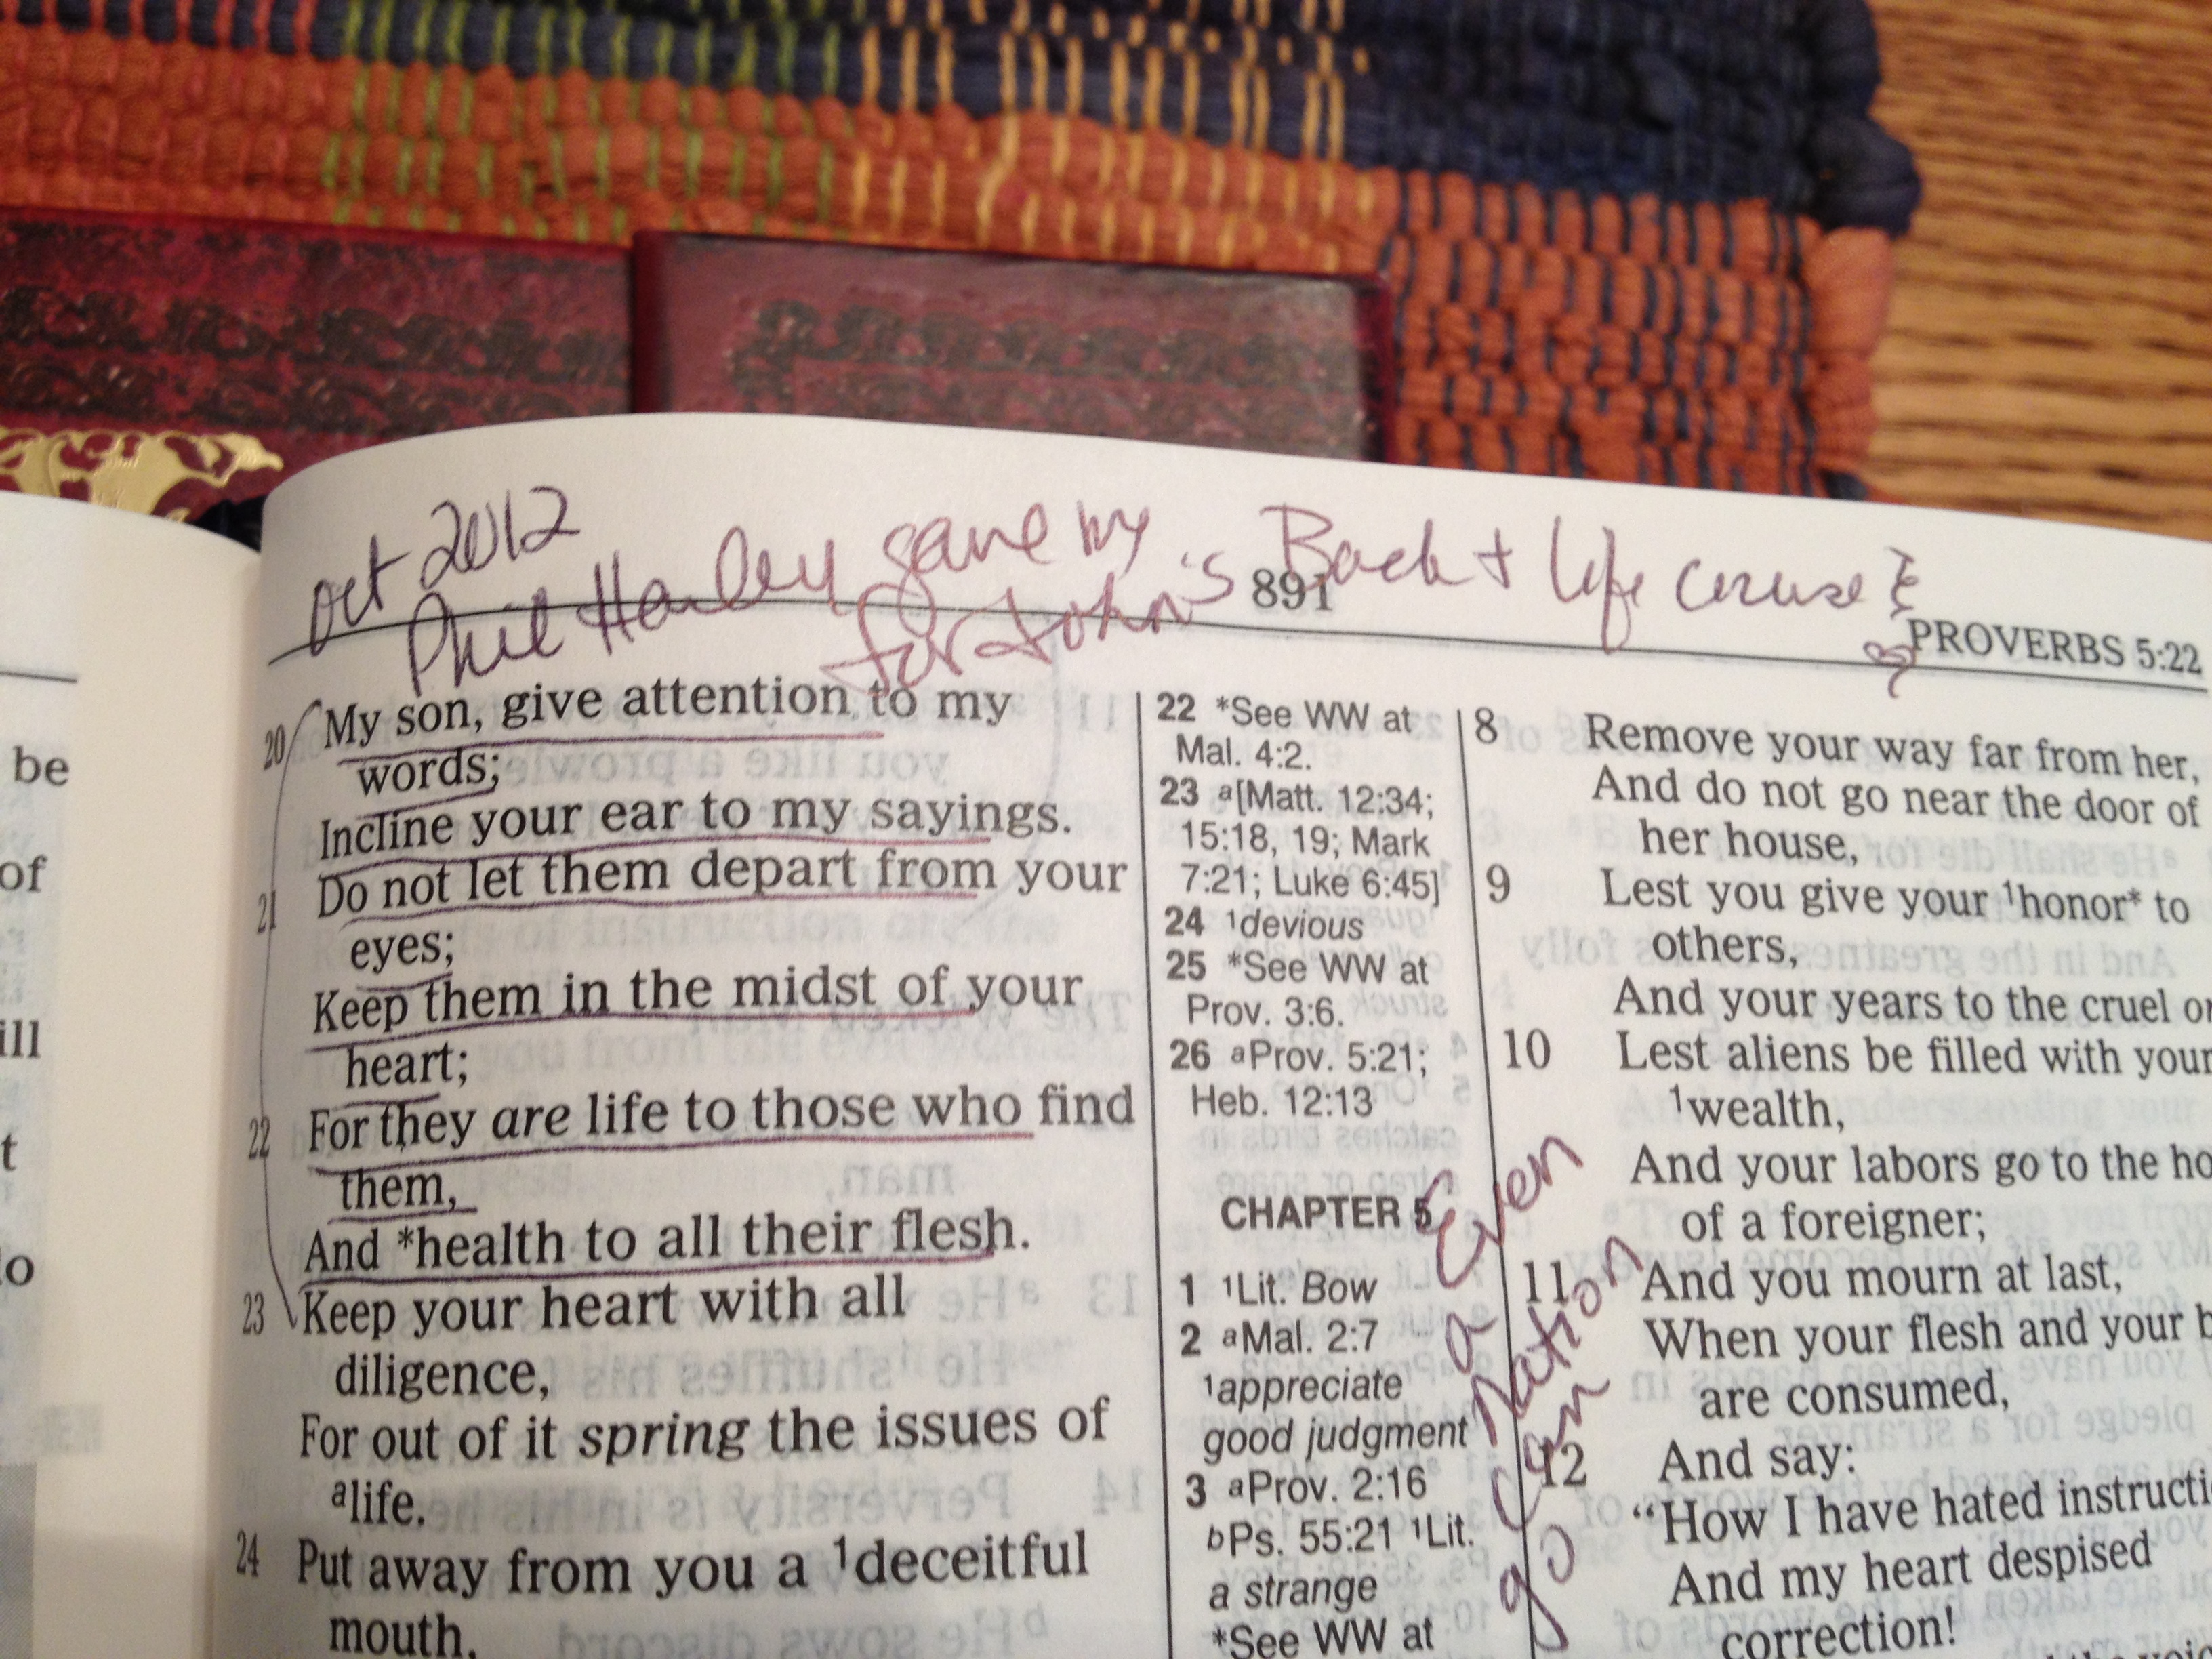 oct 2012
Phil Hanley gave my Back + life
for John's
891
PROVERBS 5:22
be
of
ill
t
20 My son, give attention to my
words;
Incline your ear to my sayings.
21 Do not let them depart from your
eyes;
Keep them in the midst of your
heart;
22 For they are life to those who find
them,
And *health to all their flesh.
23 Keep your heart with all
diligence,
For out of it spring the issues of
ᵃlife.
24 Put away from you a ¹deceitful
mouth,
22 *See WW at
Mal. 4:2.
23 ᵃ[Matt. 12:34;
15:18, 19; Mark
7:21; Luke 6:45]
24 ¹devious
25 *See WW at
Prov. 3:6.
26 ᵃProv. 5:21;
Heb. 12:13
CHAPTER 5
1 ¹Lit. Bow
2 ᵃMal. 2:7
¹appreciate
good judgment
3 ᵃProv. 2:16
ᵇPs. 55:21 ¹Lit.
a strange
*See WW at
Even
a
nation
can
go
8 Remove your way far from her,
And do not go near the door of
her house,
9 Lest you give your ¹honor* to
others,
And your years to the cruel
10 Lest aliens be filled with your
¹wealth,
And your labors go to the ho
of a foreigner;
11 And you mourn at last,
When your flesh and your b
are consumed,
12 And say:
“How I have hated instructi
And my heart despised
correction!